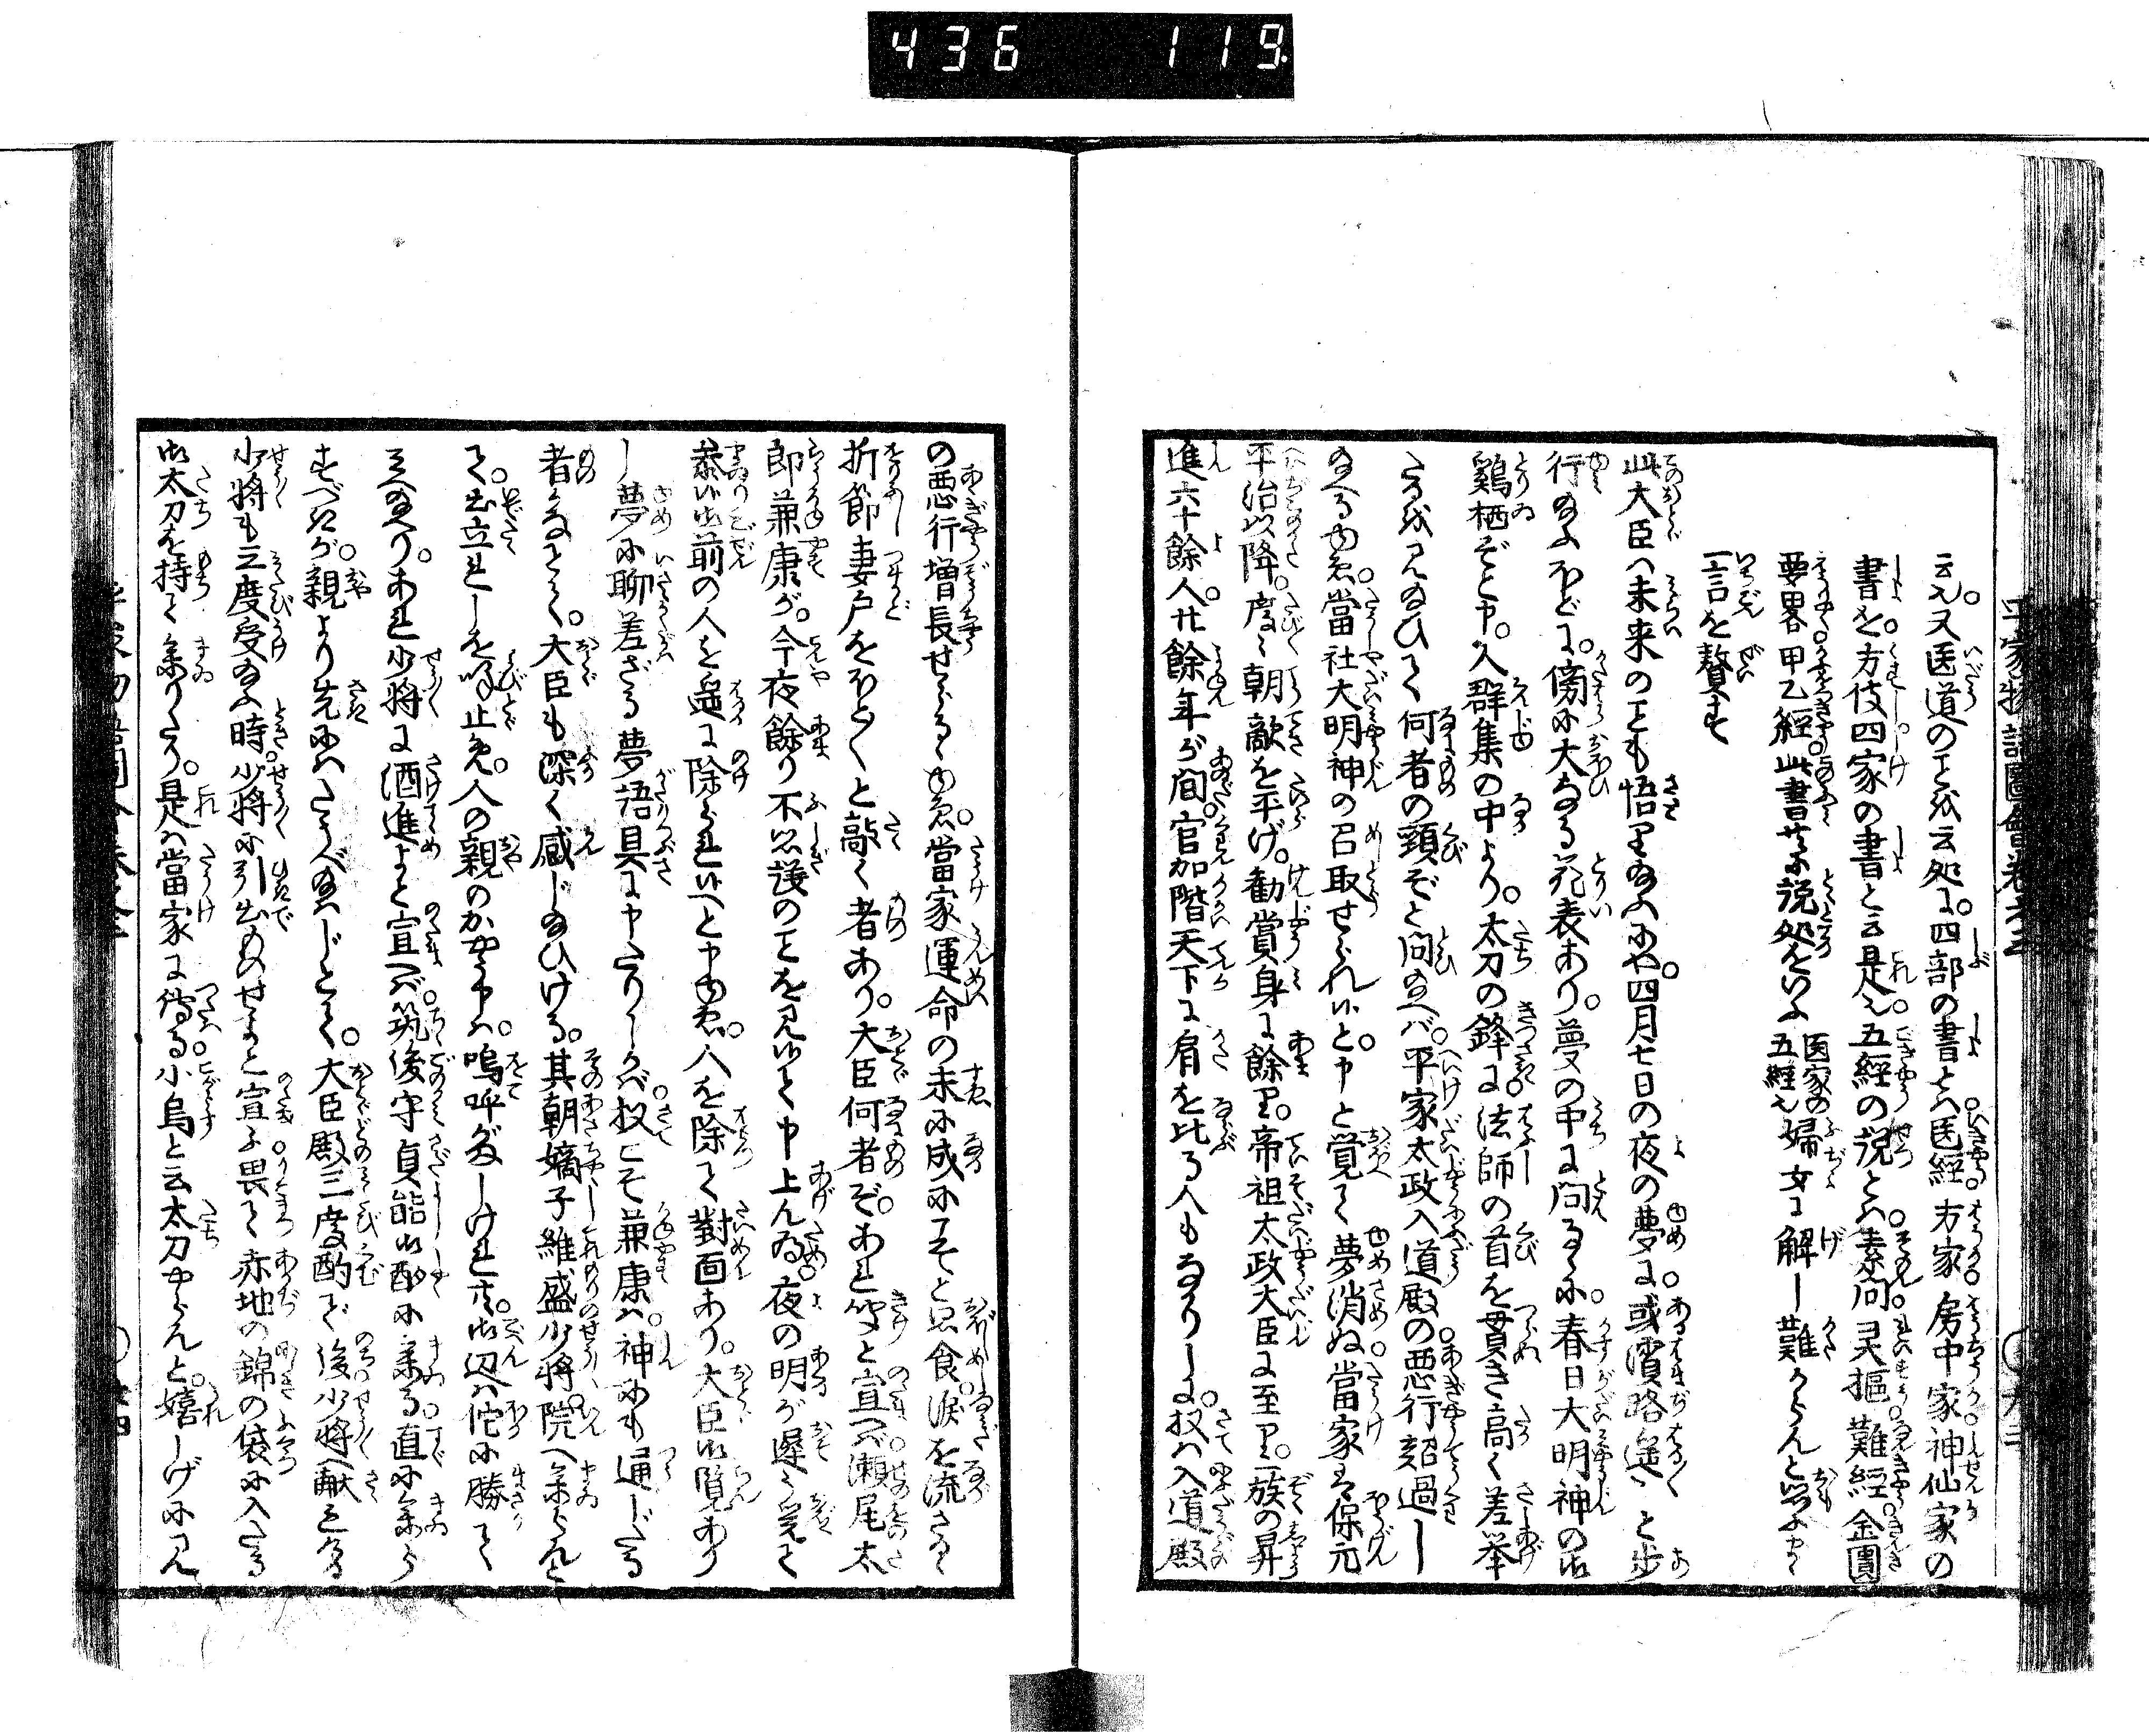 436 119
平家物語圖會巻之三
云々。又医道のことを云処に。四部の書とハ医経。方家。房中家。神仙家の
書を。方伎四家の書と云是也。五経の説とハ素問。灵樞。難経。金匱
要畧。甲乙経。此書等に説処をいふ
医家の
五経也
婦女に解し難からんと思ふゆへ
一言を贅す
此大臣ハ未来のことも悟り給ふにや。四月七日の夜の夢に。或濱路遥々と歩
行給ふほどに。傍に大なる花表あり。夢の中に問るゝに。春日大明神の御
鷄栖ぞと申。人群集の中より。太刀の鋒に。法師の首を貫き高く差挙
たるを見給ひて何者の頸ぞと問給へバ。平家太政入道殿の悪行超過し
給へるゆゑ。當社大明神の召取せられ候と。申と覚て夢消ぬ。當家ハ保元
平治以降。度々朝敵を平げ。勧賞身に餘り。帝祖太政大臣に至り。一族の昇
進六十餘人。廿餘年が間。官加階天下に肩を比る人もなかりしに。扨ハ入道殿
の悪行増長せらるゝゆゑ。當家運命の末に成にこそと思食涙を流さるゝ
折節妻戸をほと〱と敲く者あり。大臣何者ぞ。あれ聞と宣へバ。瀬尾太
郎兼康が。今夜餘り不思議のことを見候て申上んゐ。夜の明が遅く覚て
参候。御前の人を遥に除られ候へと申ゆゑ。人を除て對面あり。大臣御覧あり
し夢に聊差ざる夢語具に申たりしかバ。扨こそ兼康ハ。神にも通じたる
者かなとて。大臣も深く感じ給ひける。其朝嫡子維盛少将。院へ参らんと
て。出立れしを呼止め。人の親のか女申ハ。嗚呼がましけれ共。御辺ハ佗に勝て
見給へり。あれ少将に酒進よと宣へバ。筑後守貞能御酌に参る。直に参ら
すべきが。親より先にハたうべ給ハじとて。大臣殿三度酌で後少将へ献ぜらる
少将も三度受給ふ時。少将に引出ものせよと宣ふ。畏て赤地の錦の袋に入たる
御太刀を持て参りたり。是ハ當家に傳る。小烏と云太刀やらんと。嬉しげに見